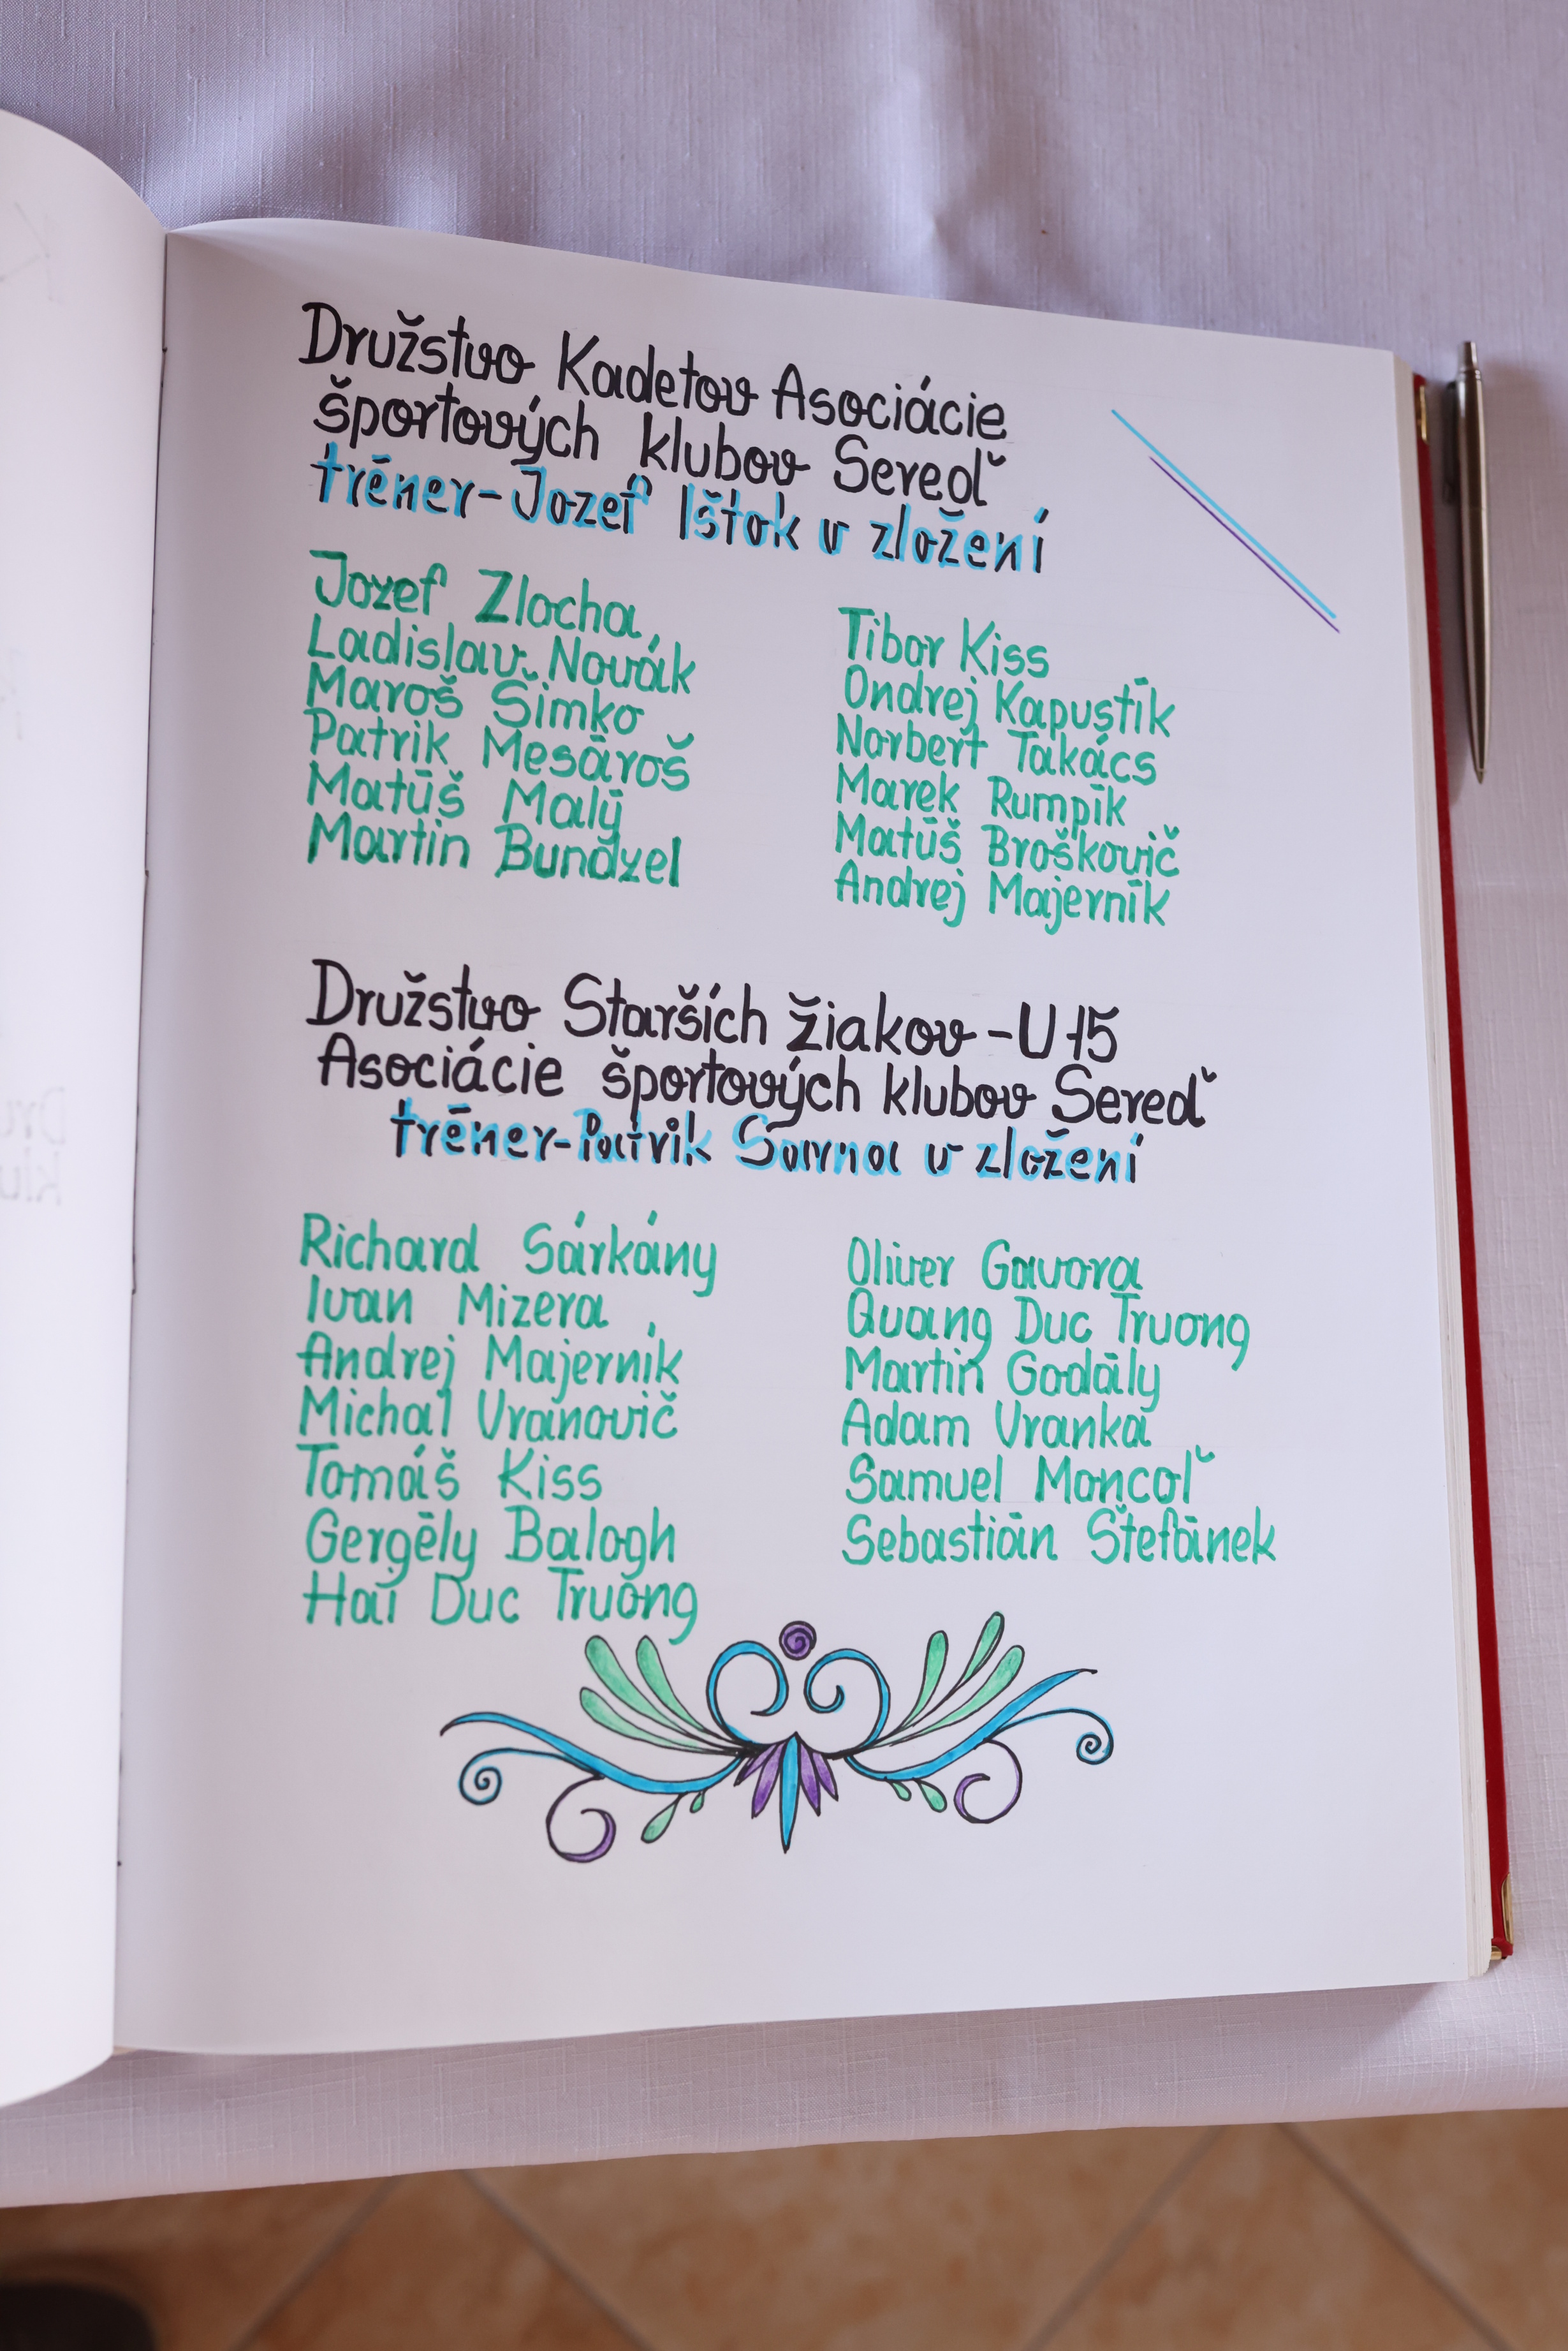 Družstvo Kadetov Asociácie
športových klubov Sereď
tréner-Jozef Ištok v zložení
Jozef Zlocha,
Ladislav Novák
Maroš Šimko
Patrik Mesároš
Matúš Malý
Martin Bundzel
Tibor Kiss
Ondrej Kapustík
Norbert Takács
Marek Rumpík
Matúš Broškovič
Andrej Majerník
Družstvo Starších žiakov -U15
Asociácie športových klubov Sereď
tréner-Patrik Sarna v zložení
Richard Sárkány
Ivan Mizera
Andrej Majerník
Michal Vranovič
Tomáš Kiss
Gergély Balogh
Hai Duc Truong
Oliver Gavora
Quang Duc Truong
Martin Godály
Adam Vranka
Samuel Moncoľ
Sebastián Štefánek